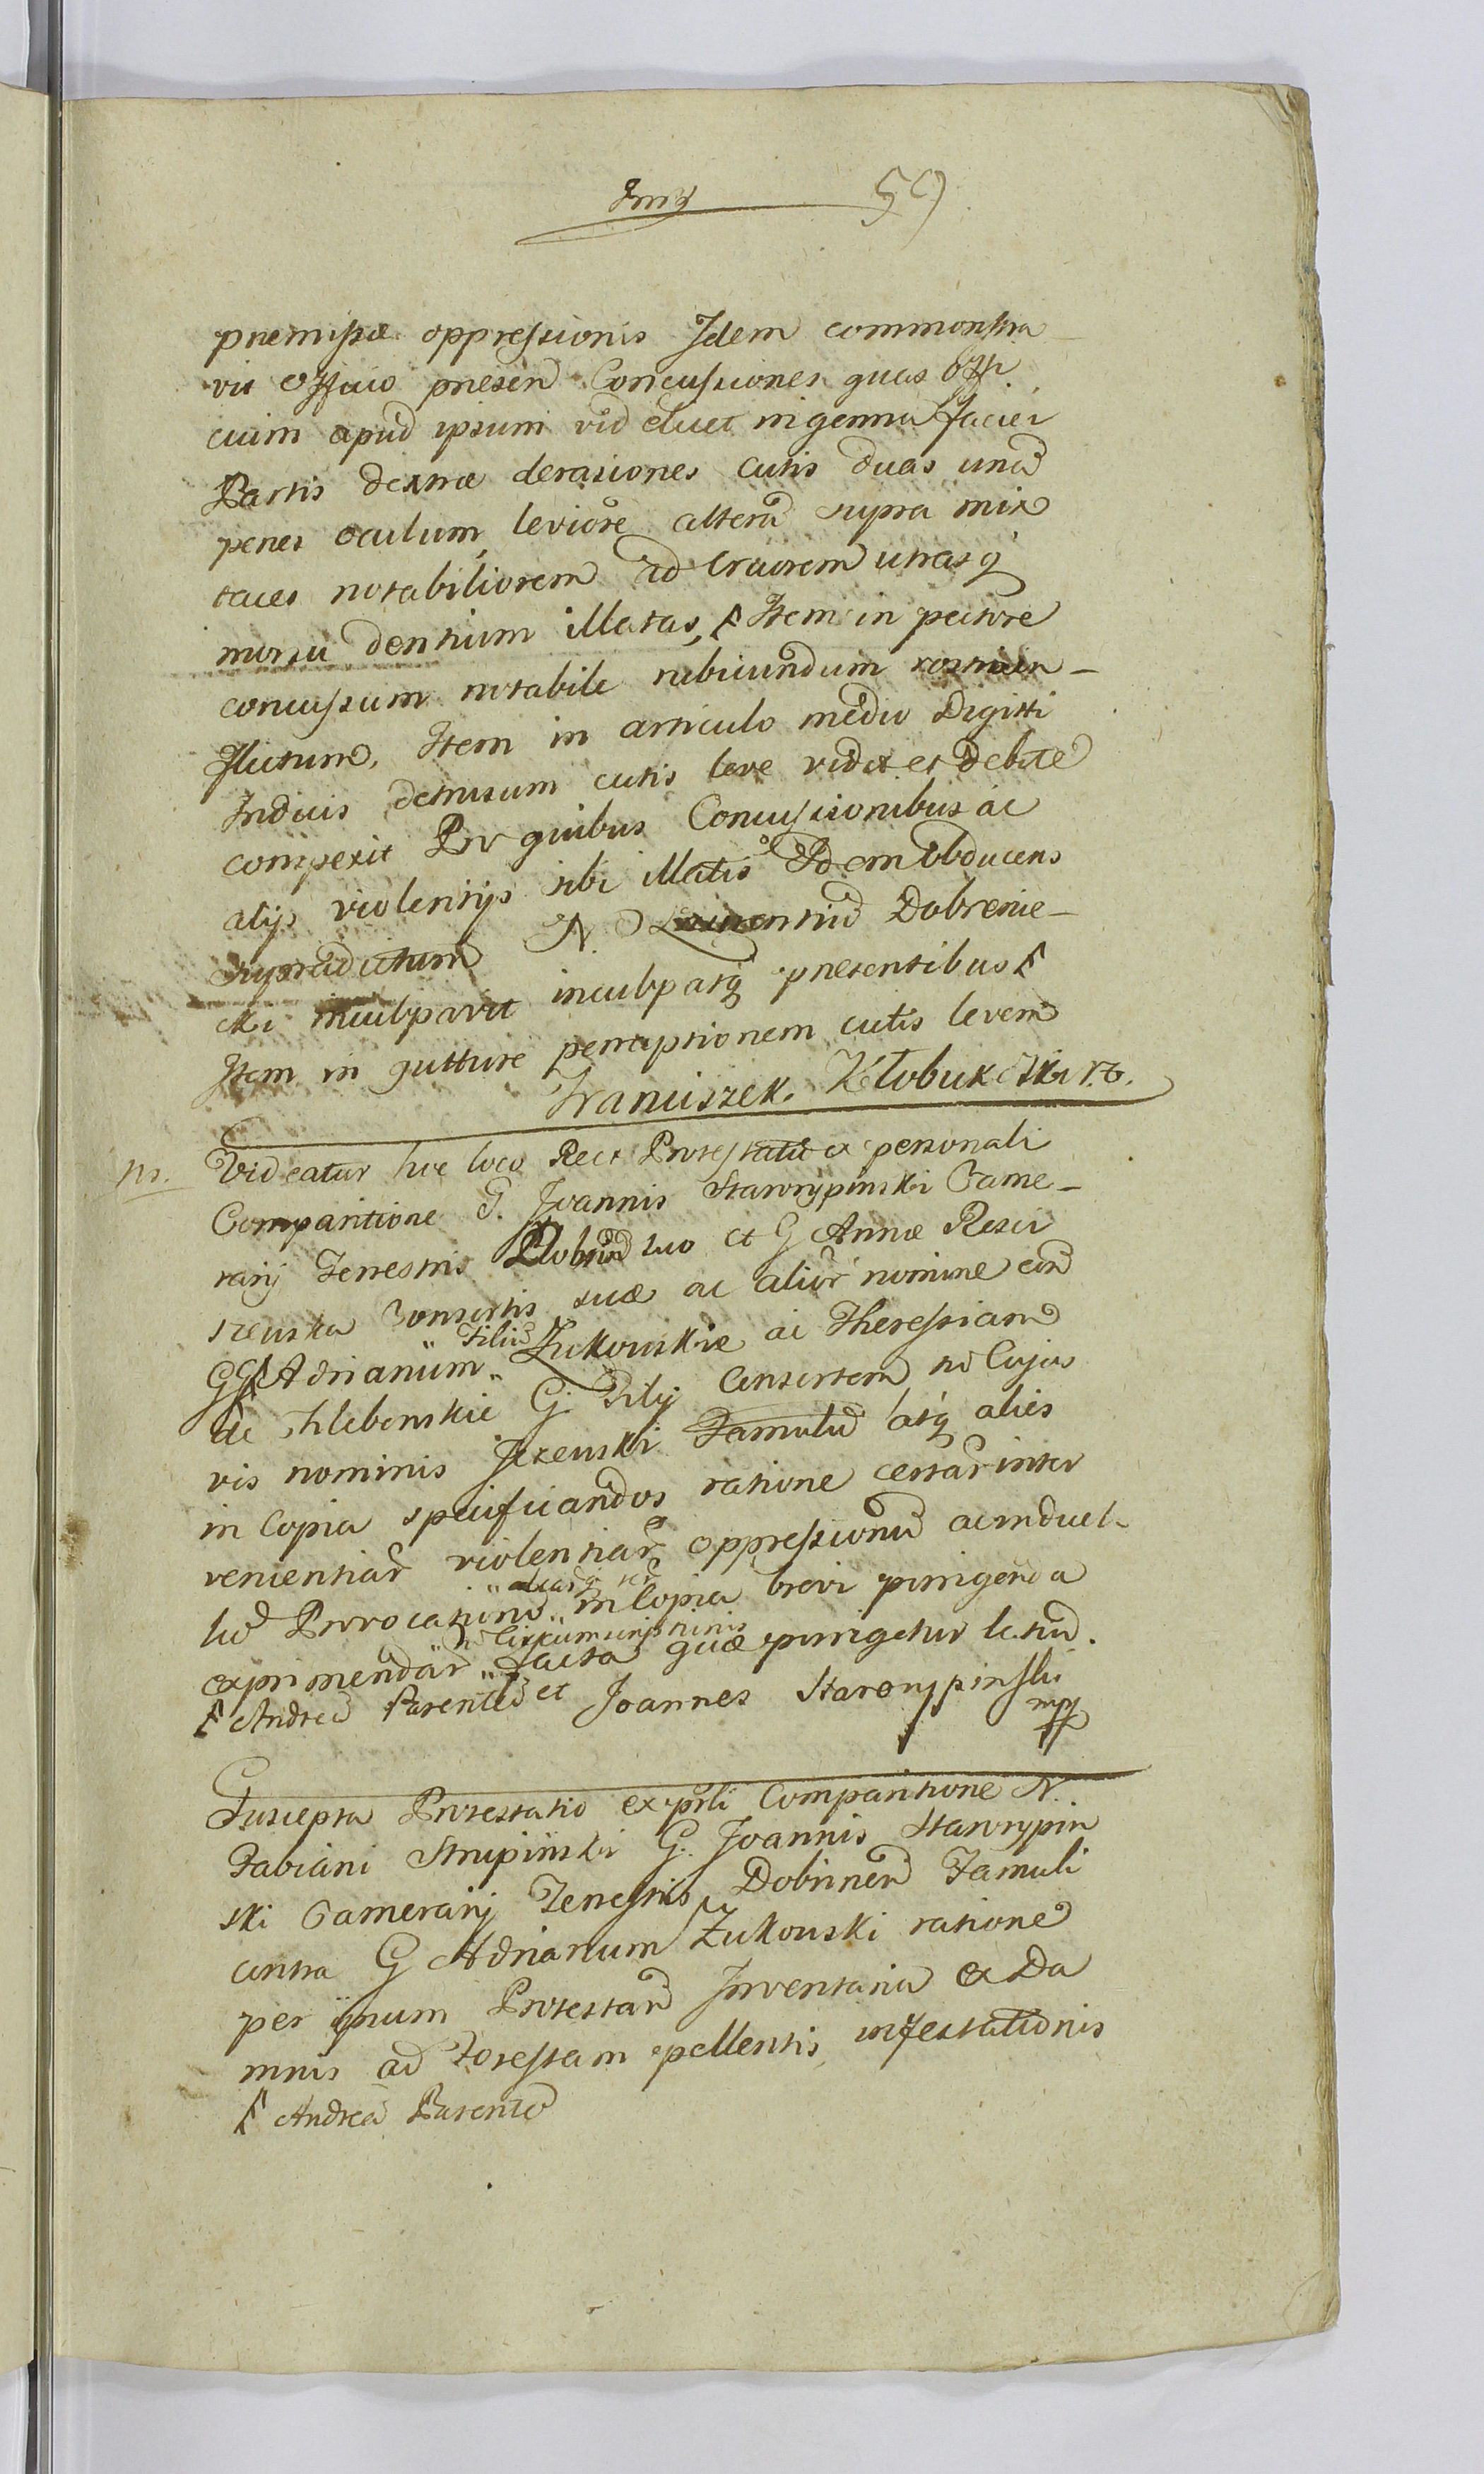 59
premissæ oppressionis Idem commonstra
vit Officio presen Concussiones quas Offi
cium apud ipsum vid eluet in gemma faciei
Partis dextræ derasiones cutis duas unã
penes oculum leviorẽ alterã supra mix
taces notabiliorem ad cruorem utrasq
morsu dentium illatas, Item in pectore
concussum notabile rubicundum
flictum, Item in articulo medio Digitti
Indicis detrusum cutis leve vidit et debite
comperit Pro quibus Concussionibus ac
alijs violentijs sibi illatis Idem Obducens
supradictum N. Laurentiũ Dobrenie-
cki inculpavit inculpatq presentibus
Item in gutture perruptionem cutis levem
Franciszek Kłobukowski
Ns. Videatur hoc loco Rect Protestatio ex personali
Comparitione G. Joannis Starorypinski Came-
rarij Terrestris Dobrin suo et G Annæ Rości
szewska Consortis suæ ac alior nomine con
GG Adrianum Filiũ Zukowskie ac Theressiam
de Chlebowskie G. Filij Consortem nõ Cujus
vis nominis Jezewski Famulũ atq alies
in Copia specificandos ratione certar inter
venientiar violentiar oppressionũ ac in duel-
lũ Provocationũ aliarq rer in Copia brevi porrigenda
exprimendar Circumscriptionis facta quæ porrigetur lectũ.
Andreã Parentẽ et Joannes Starorypinski
mpp
Suscepta Protestatio ex prli Comparitione N.
Fabiani Strupinski G. Joannis Starorypin
ski Camerarij Terrestris Dobrinen Famuli
contra G Adrianum Zukowski ratione
per ipsum Protestan Inventaria ex Da
mnis ad Forestam pellentis infestationis
Andreã Parentẽ